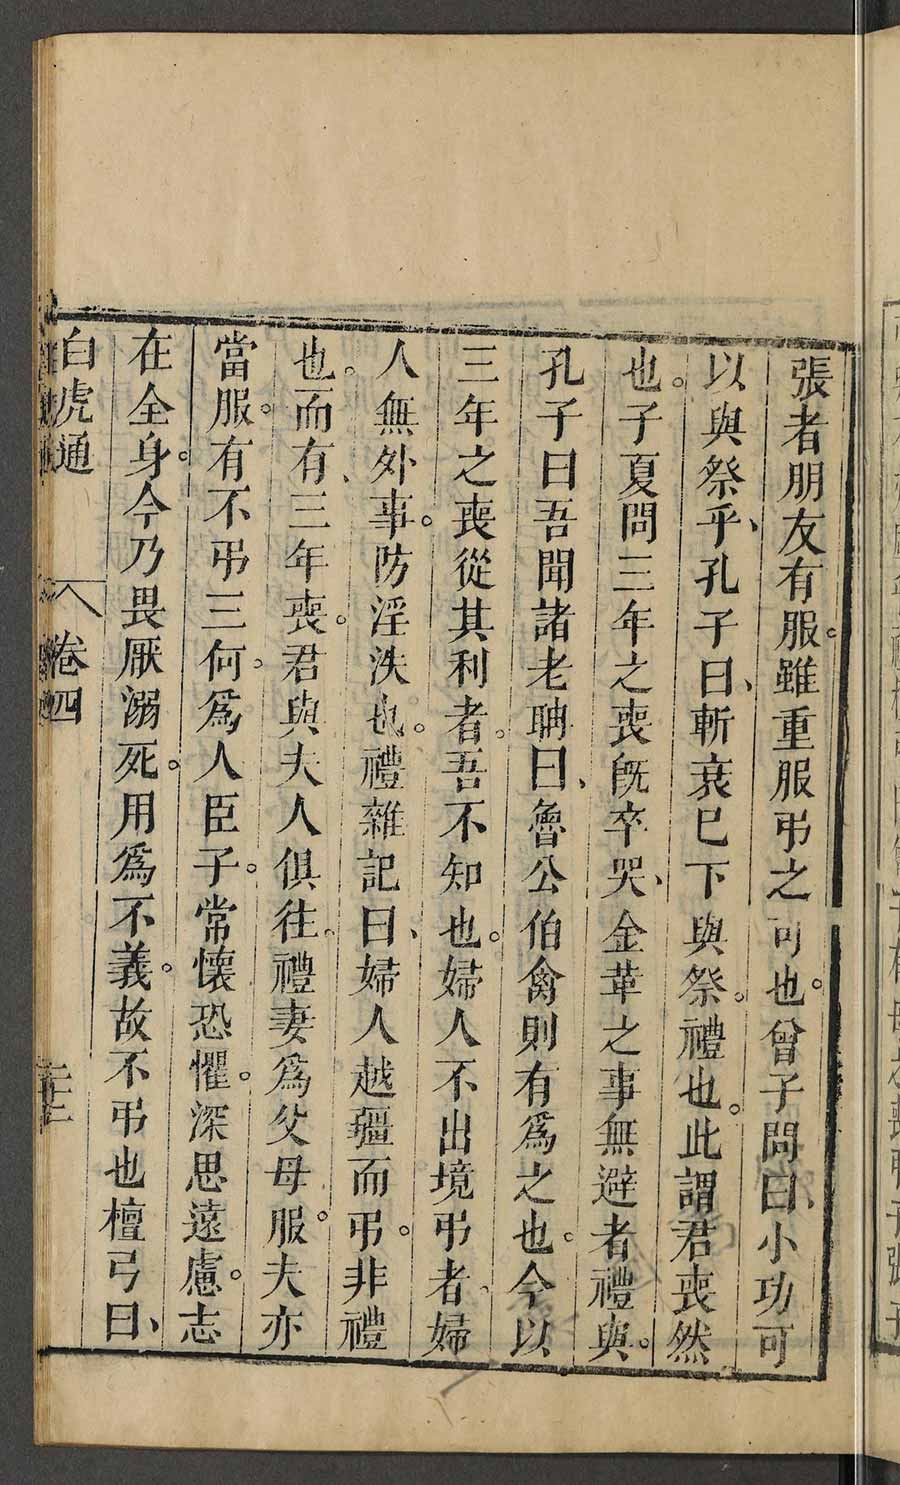 張者朋友有服。雖重服弔之可也。曾子問曰、小功可
以與祭乎、孔子曰、斬衰巳下與祭。禮也。此謂君喪然
也。子夏問三年之喪旣卒哭、金革之事無避者禮與。
孔子曰吾聞諸老聃曰、魯公伯禽則有爲之也。今以
三年之喪從其利者。吾不知也。婦人不出境弔者、婦
人無外事。防淫泆也。禮雜記曰、婦人越疆而弔。非禮
也。而有、三年喪。君與夫人俱往。禮妻爲父母服。夫亦
當服。有不弔三何。爲人臣子。常懷恐懼。深思遠慮。志
在全身。今乃畏厭溺死。用爲不義。故不弔也檀弓曰、
白虎通 卷四 二十二